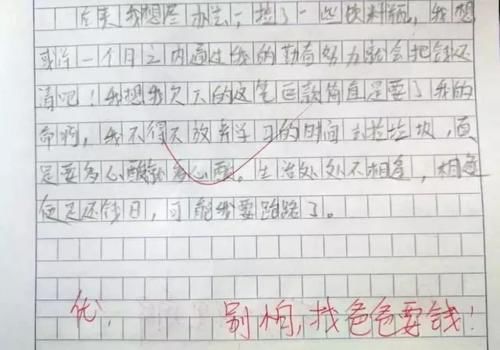 后天我想尽办法，捡了一些饮料瓶，我想
或许一个月之内通过我的勤奋努力就会把钱还
清吧！我想我欠下的这笔巨款简直是要了我的
命啊，我不得不放弃学习的时间去捡垃圾，真
是要多心酸就多心酸。生活处处不相逢，相逢
便是还钱日，可能我要跑路了。
优， 别怕，找爸爸要钱！